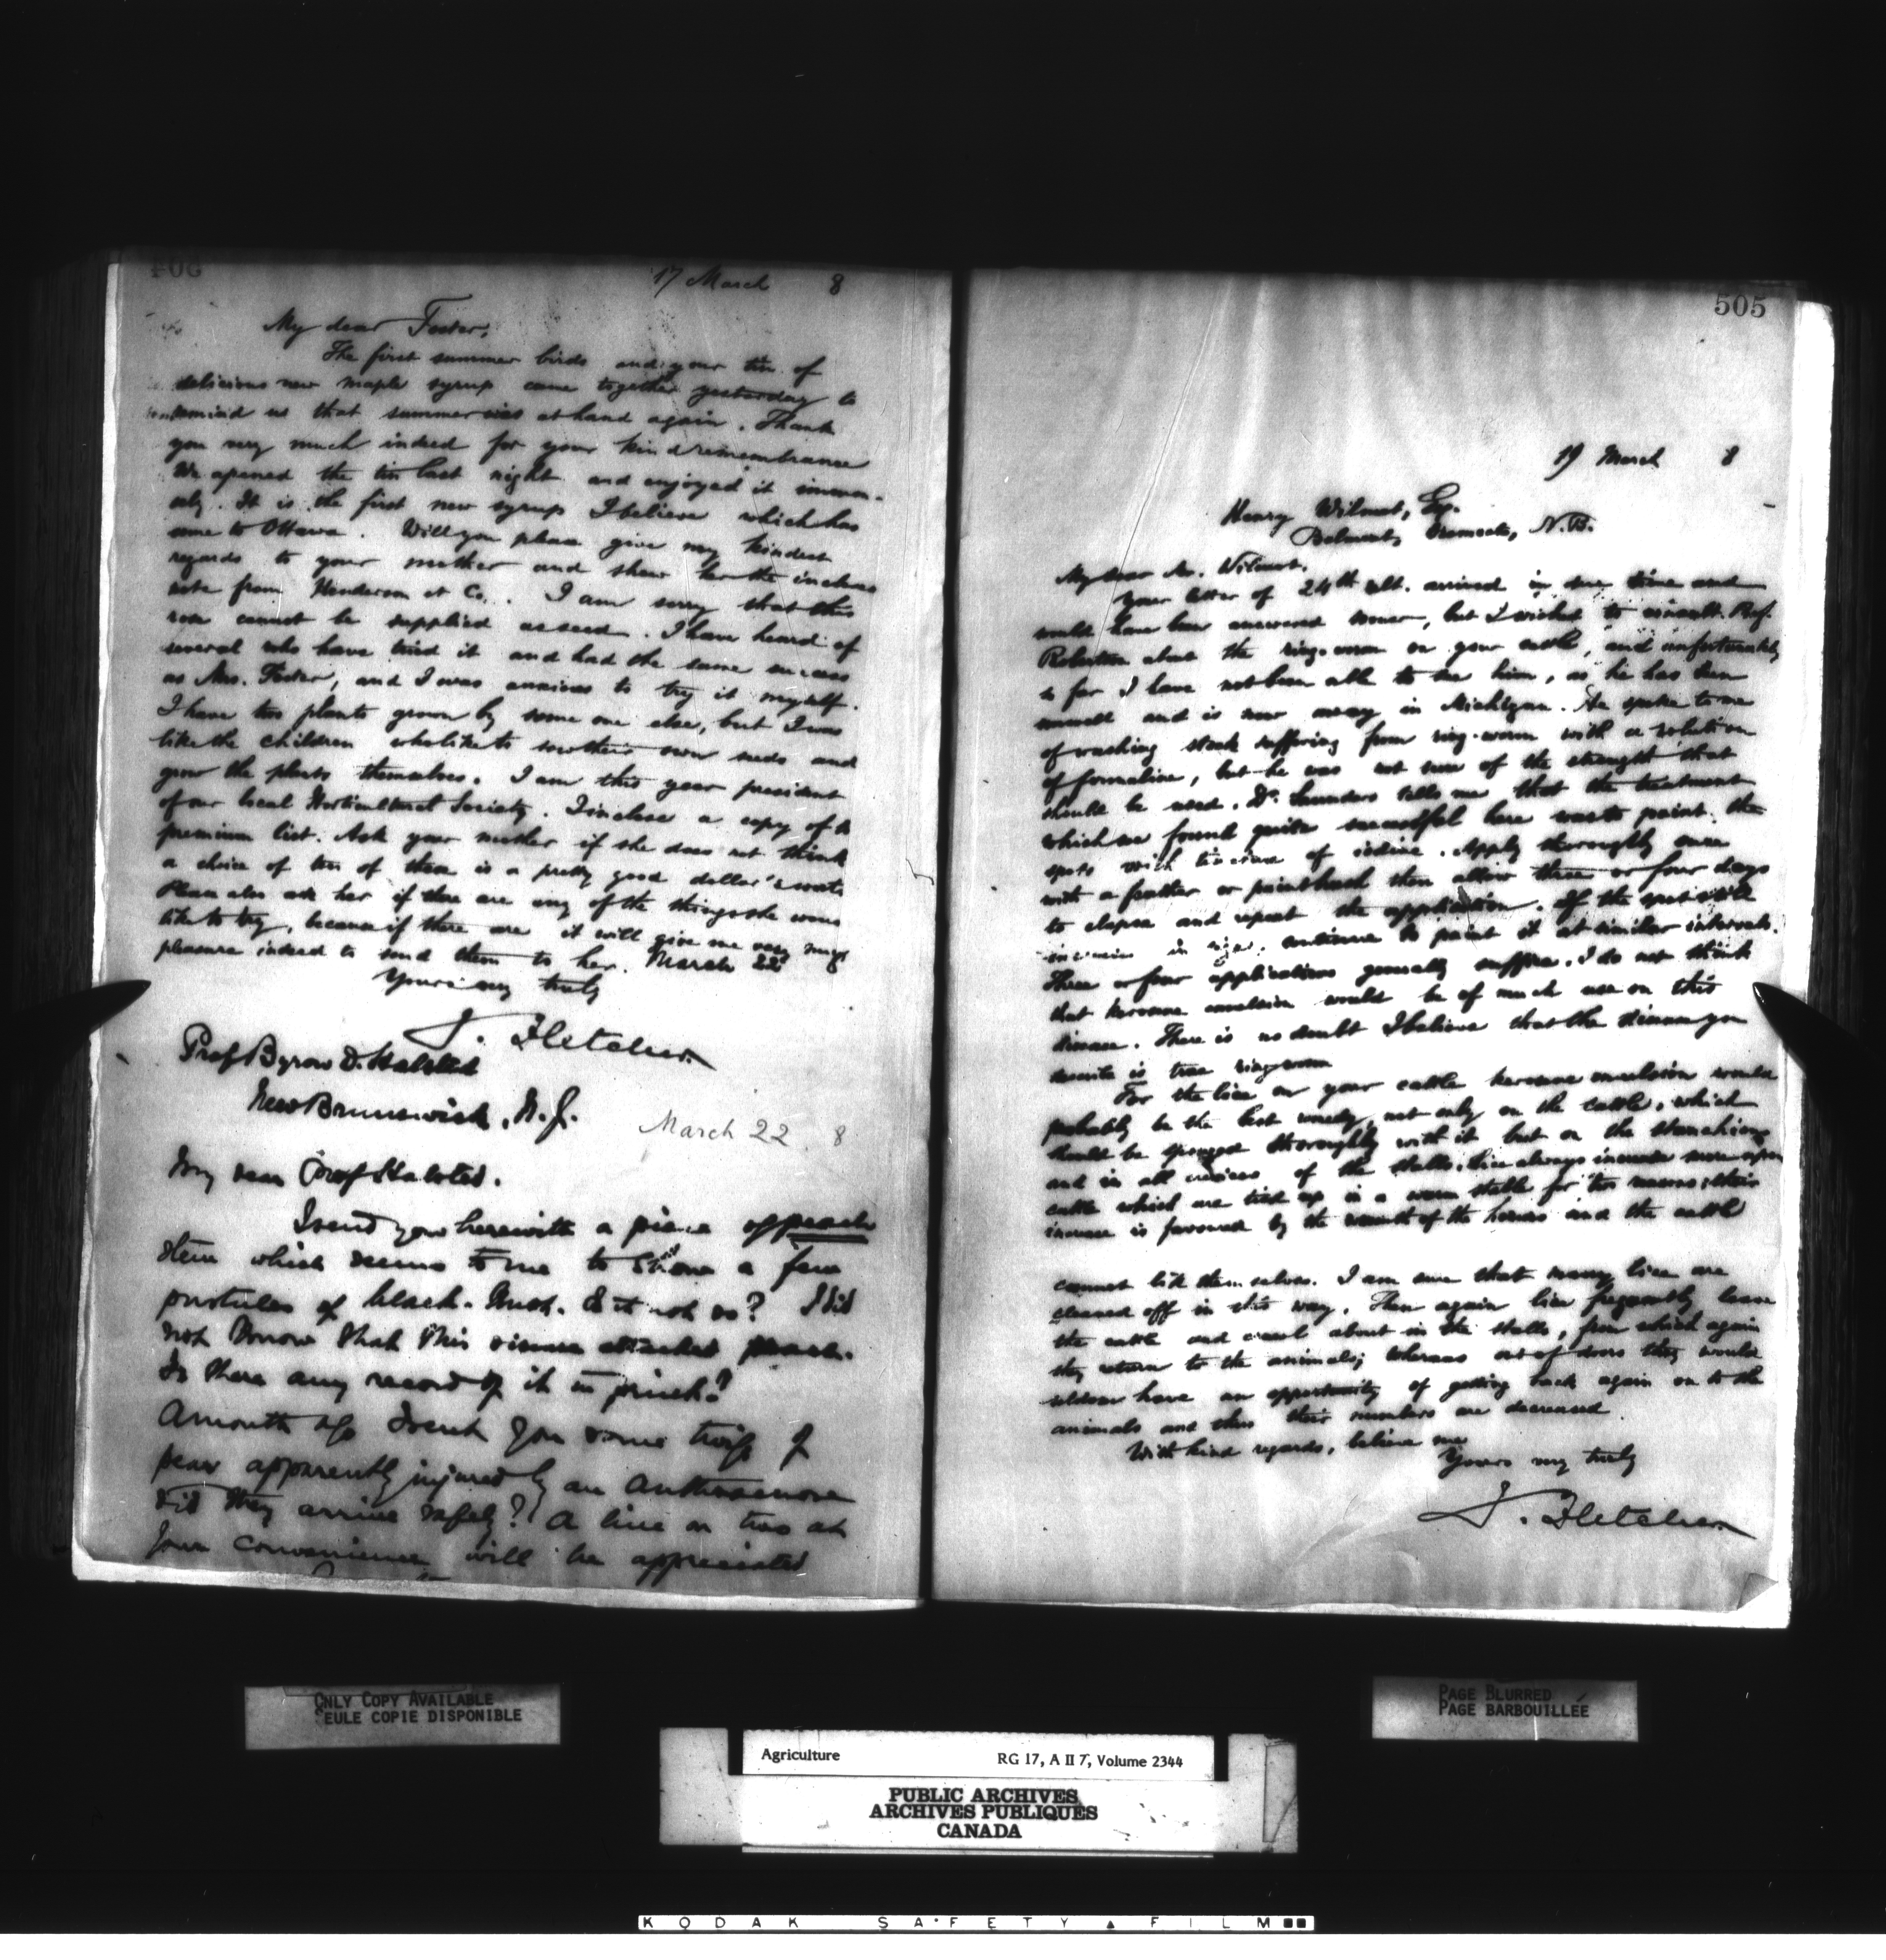 504
17 March 8
My dear Foster,
The first summer birds and your tin of
delicious new maple syrup came together yesterday to
remind us that summer was at hand again. Thank
you very much indeed for your kind remembrance
We opened the tin last night and enjoyed it immen-
sely. It is the first new syrup I believe which has
come to Ottawa. Will you please give my kindest
regards to your mother and shew her the inclosed
note from Henderson & Co. I am sorry that this
rose cannot be supplied as seed. I have heard of
several who have tried it and had the same success
as Mrs. Foster, and I was anxious to try it myself.
I have two plants grown by some one else, but I am
like the children who like to sow their own seeds and
grow the plants themselves. I am this year president
of our local Horticultural Society. I inclose a copy of the
premium list. Ask your mother if she does not think
a choice of two of these is a pretty good dollar's worth
Please also ask her if there are any of the things she would
like to try, because if there are it will give me very much
pleasure indeed to send them to her. March 22
Yours very truly
J. Fletcher
Prof Byron D. Halsted
New Brunswick, N.J.
March 22 8
My dear Prof Halsted.
I send you herewith a piece of peach
stem which seems to me to show a few
pustules of black-knot. Is it not so? I did
not know that this disease attacked peach.
Is there any record of it in print?
A month ago I sent you some twigs of
pear apparently injured by an Anthracnose
Did they arrive safely? A line or two at
your convenience will be appreciated
505
19 March 8
Henry Wilmot, Esq.
Belmont, Oromocto, N.B.
My dear Mr. Wilmot,
Your letter of 24th ult. arrived in due time and
would have been answered sooner, but I wished to consult Prof.
Robertson about the ring-worm on your cattle, and unfortunately
so far I have not been able to see him, as he has been
unwell and is now away in Michigan. He spoke to me
of washing stock suffering from ring-worm with a solution
of formaline, but he was not sure of the strength that
should be used. Dr. Saunders tells me that the treatment
which we found quite successful here was to paint the
spots with tincture of iodine. Apply thoroughly once
with a feather or paint brush then allow three or four days
to elapse and repeat the application. If the spot still
increases in size, continue to paint it at similar intervals.
Three or four applications generally suffice. I do not think
that kerosene emulsion would be of much use on this
disease. There is no doubt I believe that the disease you
describe is true ringworm
For the lice on your cattle kerosene emulsion would
probably be the best remedy, not only on the cattle, which
should be sponged thoroughly with it but on the stanchions
and in all crevices of the stalls. Lice always increase more upon
cattle which are tied up in a warm stable for two reasons; their
increase is favoured by the warmth of the houses and the cattle
cannot lick themselves. I am sure that many lice are
cleaned off in this way. Then again lice frequently leave
the cattle and crawl about in the stalls, from which again
they return to the animals; whereas out of doors they would
seldom have an opportunity of getting back again on to the
animals and thus their numbers are decreased.
With kind regards, believe me
Yours very truly
J. Fletcher
ONLY COPY AVAILABLE
SEULE COPIE DISPONIBLE
PAGE BLURRED
PAGE BARBOUILLÉE
Agriculture RG 17, A II 7, Volume 2344
PUBLIC ARCHIVES
ARCHIVES PUBLIQUES
CANADA
KODAK SAFETY FILM